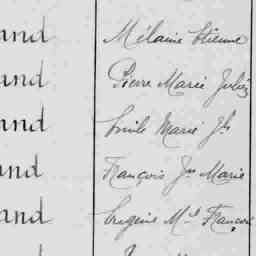 and Mélanie Etienne
and Pierre Marie Julien
and Emile Marie Jh
and François Jn Marie
and Eugène M. François